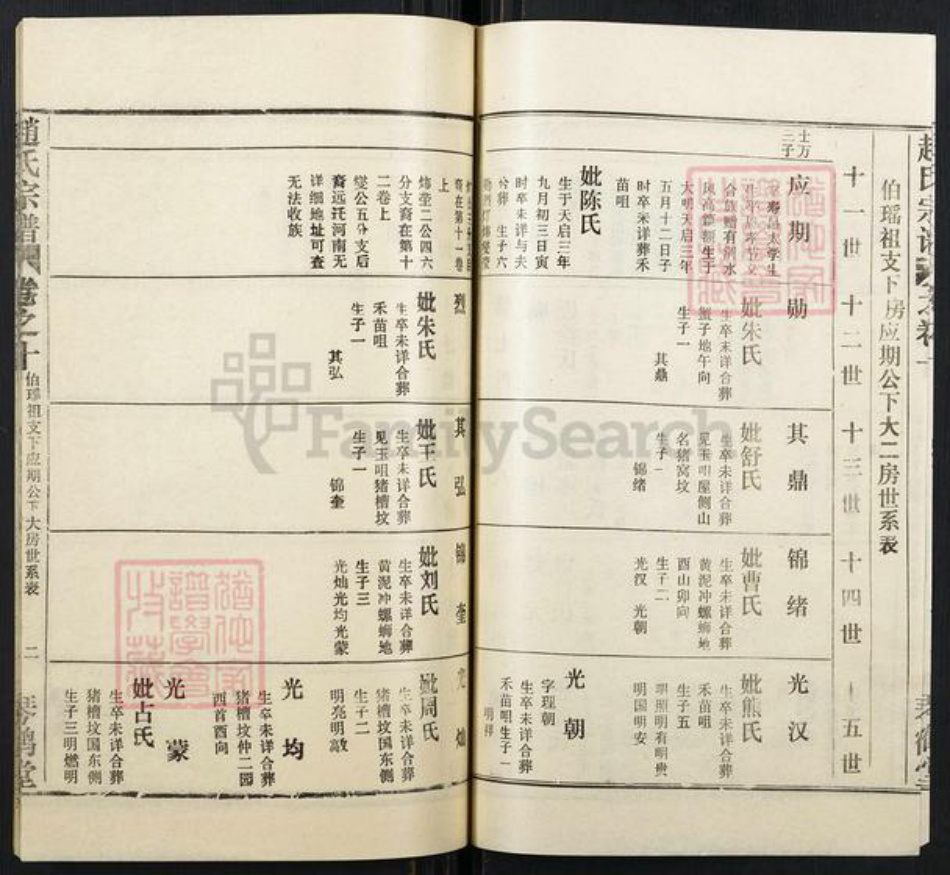 伯瑶祖支下房应期公下大二房世系表
十一世
十二世
十三世
十四世
十五世
士万
三子
应期
大明天启三年
五月十二日子
时卒未详葬禾
苗咀
妣陈氏
生于天启三年
九月初三日寅
时卒未详与夫
合葬 生子六
裔在第十一卷
上
炜莹二公四六
分支裔在第十
二卷上
燮公五分支后
裔远迁河南无
详细地址可查
无法收族
勋
妣朱氏
生卒未详合葬
蟹子地午向
生子一
其鼎
烈
妣朱氏
生卒未详合葬
禾苗咀
生子一
其弘
其鼎
妣舒氏
生卒未详合葬
见玉咀屋侧山
名猪窝坟
生子一
锦绪
其弘
妣王氏
生卒未详合葬
见玉咀猪槽坟
生子一
锦奎
锦绪
妣曹氏
生卒未详合葬
黄泥冲螺蛳地
酉山卯向
生子二
光汉 光朝
锦奎
妣刘氏
生卒未详合葬
黄泥冲螺蛳地
生子三
光灿光均光蒙
光汉
妣熊氏
生卒未详合葬
禾苗咀
生子五
明照明有明贵
明国明安
光朝
字理朝
生卒未详合葬
禾苗咀生子一
明祥
光灿
妣周氏
生卒未详合葬
猪槽坟国东侧
生子二
明亮明高
光均
生卒未详合葬
猪槽坟仲二园
西首酉向
光蒙
妣占氏
生卒未详合葬
猪槽坟国东侧
生子三明燃明
赵氏宗谱
卷之十
伯瑶祖支下应期公下大房世系表
二
琴鹤堂
FamilySearch